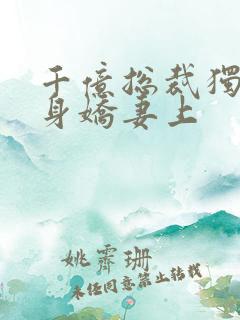 千億總裁獨
身嬌妻上
姚霽珊
未經同意禁止轉載